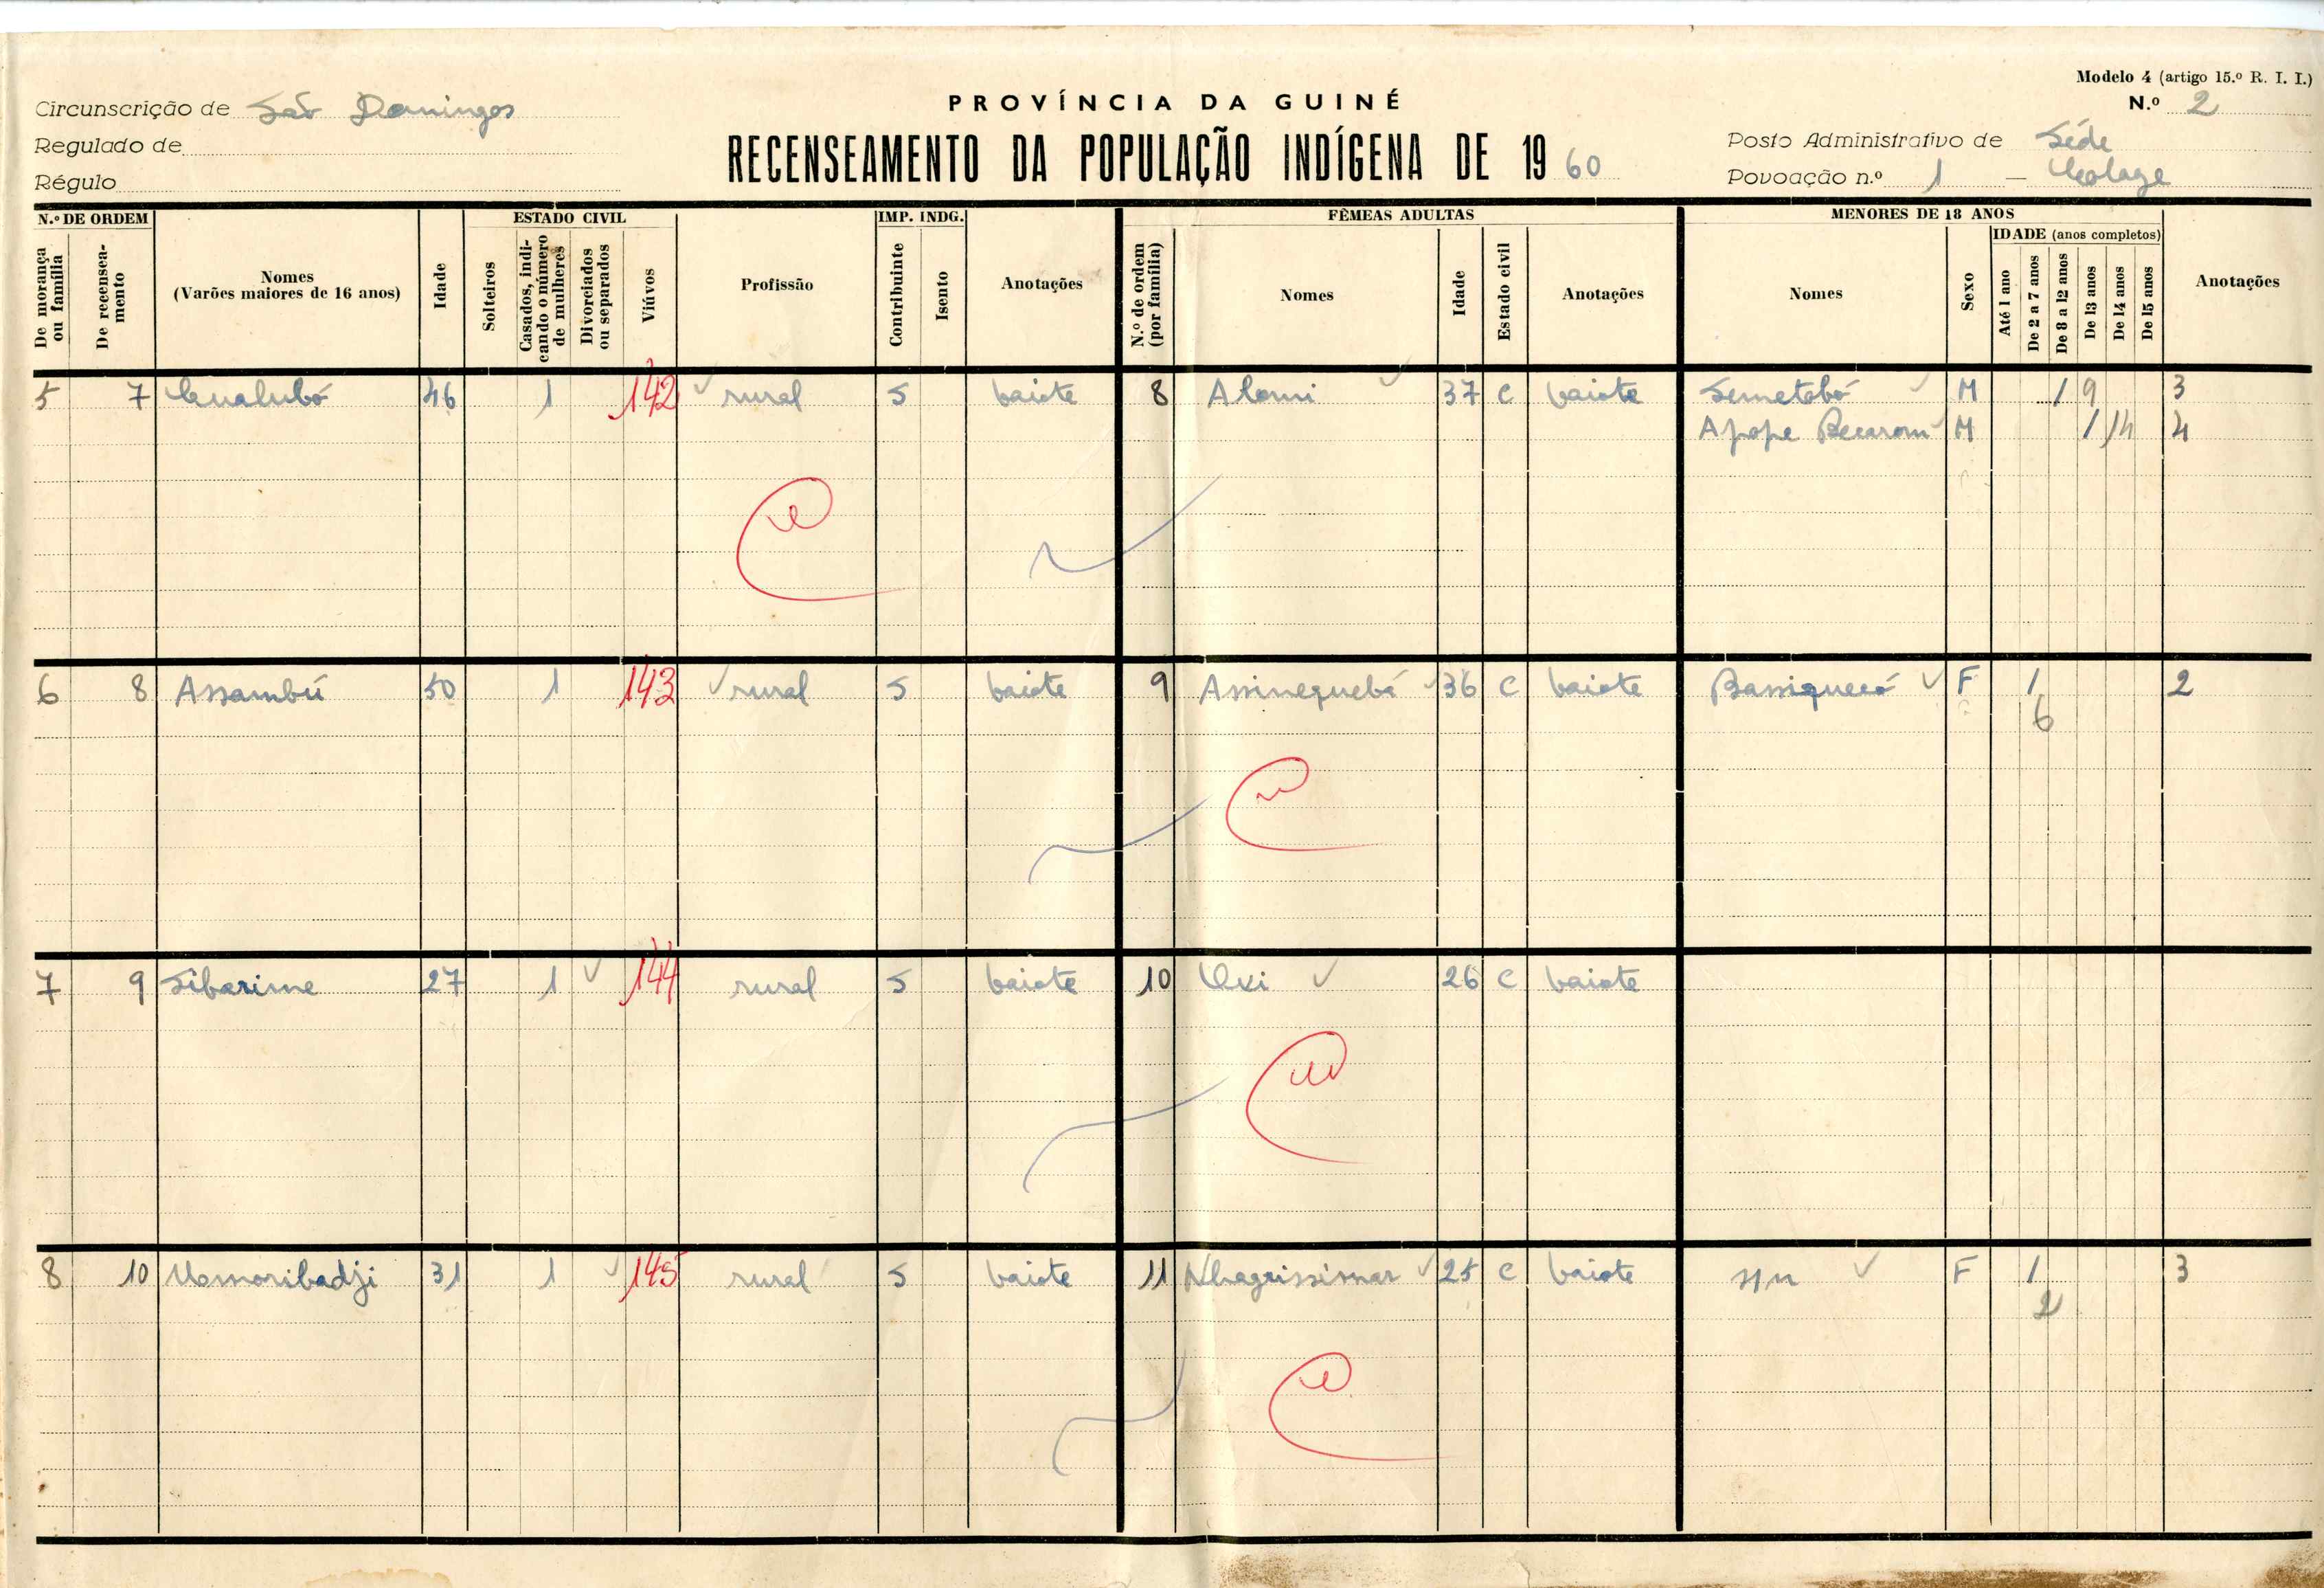 Modelo 4 (artigo 15.º R. I. I.)
N.º 2
Circunscrição de São Domingos
Regulado de
Régulo
PROVÍNCIA DA GUINÉ
RECENSEAMENTO DA POPULAÇÃO INDÍGENA DE 1960
Posto Administrativo de Séde
Povoação n.º 1 —
N.º DE ORDEM
De morança ou família
De recenseamento
Nomes
(Varões maiores de 16 anos)
Idade
ESTADO CIVIL
Solteiros
Casados, indicando o número de mulheres
Divorciados ou separados
Viúvos
Profissão
IMP. INDG.
Contribuinte
Isento
Anotações
FÊMEAS ADULTAS
N.º de ordem (por família)
Nomes
Idade
Estado civil
Anotações
MENORES DE 18 ANOS
Nomes
Sexo
IDADE (anos completos)
Até 1 ano
De 2 a 7 anos
De 8 a 12 anos
De 13 anos
De 14 anos
De 15 anos
Anotações
5 7 46 1 142 rural S baiote 8 Alomi 37 C baiote Semetebó M 1 9 3
Apope M 1 14 4
6 8 Assambú 50 1 143 rural S baiote 9 Assinequebá 36 C baiote Bassiquecó F 1 2
6
7 9 Sibarime 27 1 144 rural S baiote 10 26 C baiote
8 10 31 1 145 rural S baiote 11 Nhagrissimar 25 C baiote F 1 3
2